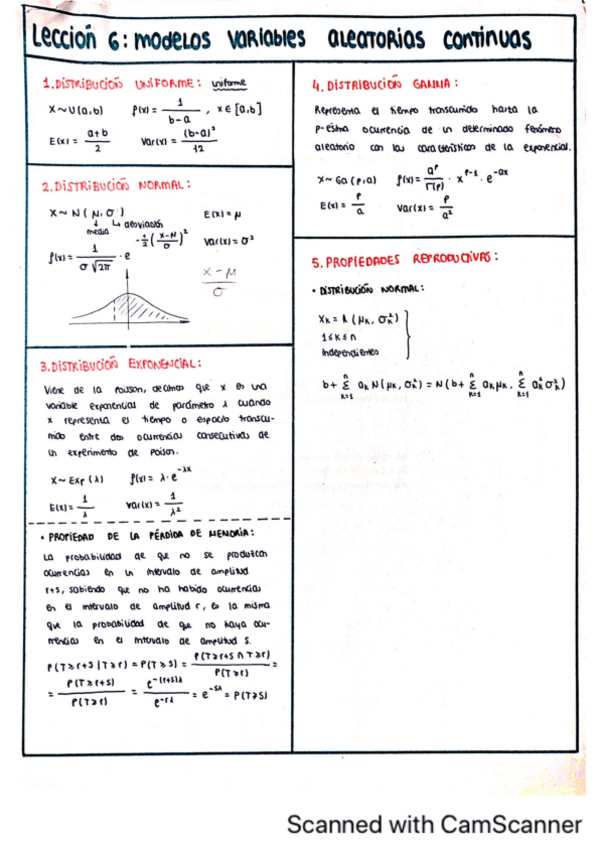 Lección 6: modelos variables aleatorias continuas
1. DISTRIBUCIÓN UNIFORME: uniforme
X ~ U(a,b) f(x) = 1/(b-a) , x ∈ [a,b]
E(x) = (a+b)/2 Var(x) = (b-a)²/12
2. DISTRIBUCIÓN NORMAL:
X ~ N(μ, σ) E(x) = μ
↓ media ↳ desviación
f(x) = 1/(σ√2π) · e^(-½((x-μ)/σ)²) Var(x) = σ²
(x-μ)/σ
3. DISTRIBUCIÓN EXPONENCIAL:
Viene de la Poisson, decimos que x es una
variable exponencial de parámetro λ cuando
x representa el tiempo o espacio transcu-
rrido entre dos ocurrencias consecutivas de
un experimento de Poison.
X ~ Exp(λ) f(x) = λ·e^(-λx)
E(x) = 1/λ Var(x) = 1/λ²
• PROPIEDAD DE LA PÉRDIDA DE MEMORIA:
La probabilidad de que no se produzcan
ocurrencias en un intervalo de amplitud
r+s, sabiendo que no ha habido ocurrencias
en el intervalo de amplitud r, es la misma
que la probabilidad de que no haya ocu-
rrencias en el intervalo de amplitud s.
P(T≥r+s | T≥r) = P(T≥s) = P(T≥r+s ∩ T≥r)/P(T≥r) =
= P(T≥r+s)/P(T≥r) = e^(-(r+s)λ)/e^(-rλ) = e^(-sλ) = P(T≥s)
4. DISTRIBUCIÓN GAMMA:
Representa el tiempo transcurrido hasta la
p-ésima ocurrencia de un determinado fenómeno
aleatorio con las características de la exponencial.
X ~ Ga(p,a) f(x) = a^p/Γ(p) · x^(p-1) · e^(-ax)
E(x) = p/a Var(x) = p/a²
5. PROPIEDADES REPRODUCTIVAS:
• DISTRIBUCIÓN NORMAL:
Xk = N(μk, σk²)
1≤k≤n
Independientes
b + Σ(k=1, n) ak N(μk, σk²) = N(b + Σ(k=1, n) ak μk, Σ(k=1, n) ak² σk²)
Scanned with CamScanner